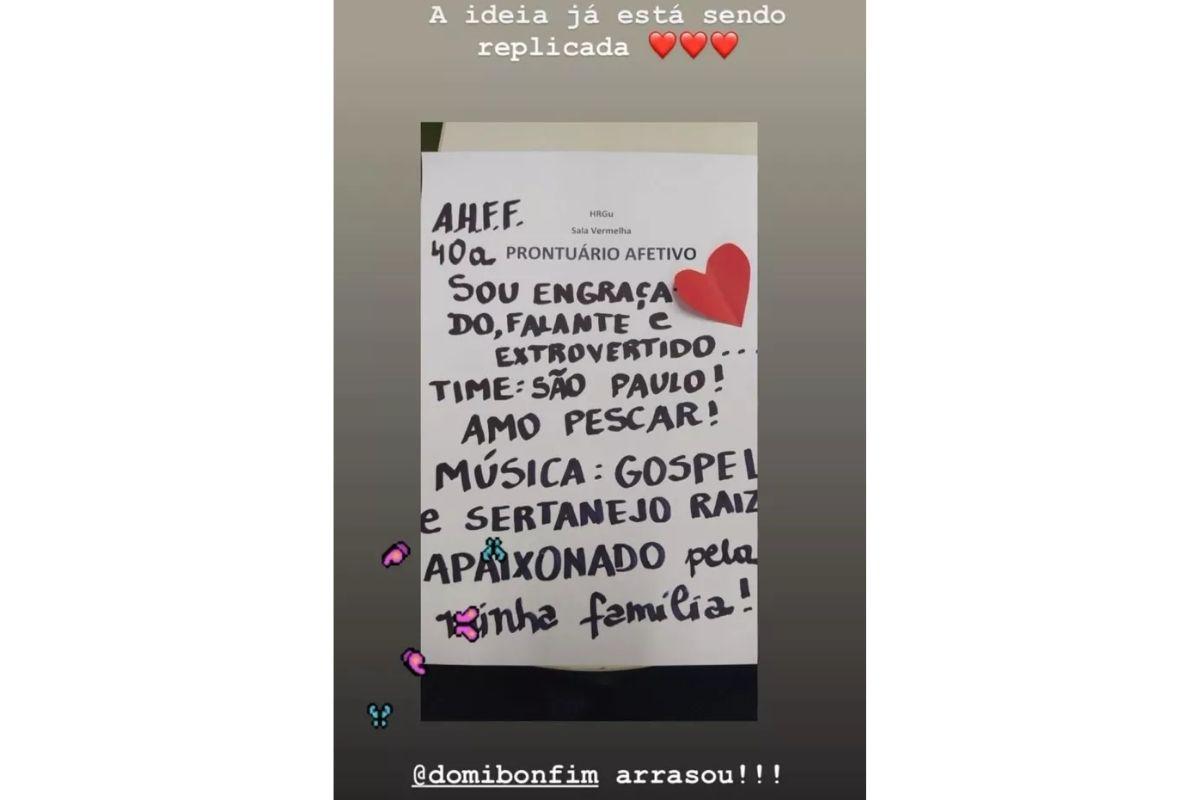 A ideia já está sendo
replicada ❤️❤️❤️
A.H.F.F.
HRGu
Sala Vermelha
40a PRONTUÁRIO AFETIVO
SOU ENGRAÇA
DO, FALANTE e
EXTROVERTIDO...
TIME: SÃO PAULO!
AMO PESCAR!
MÚSICA: GOSPEL
e SERTANEJO RAIZ
APAIXONADO pela
minha família!
@domibonfim arrasou!!!